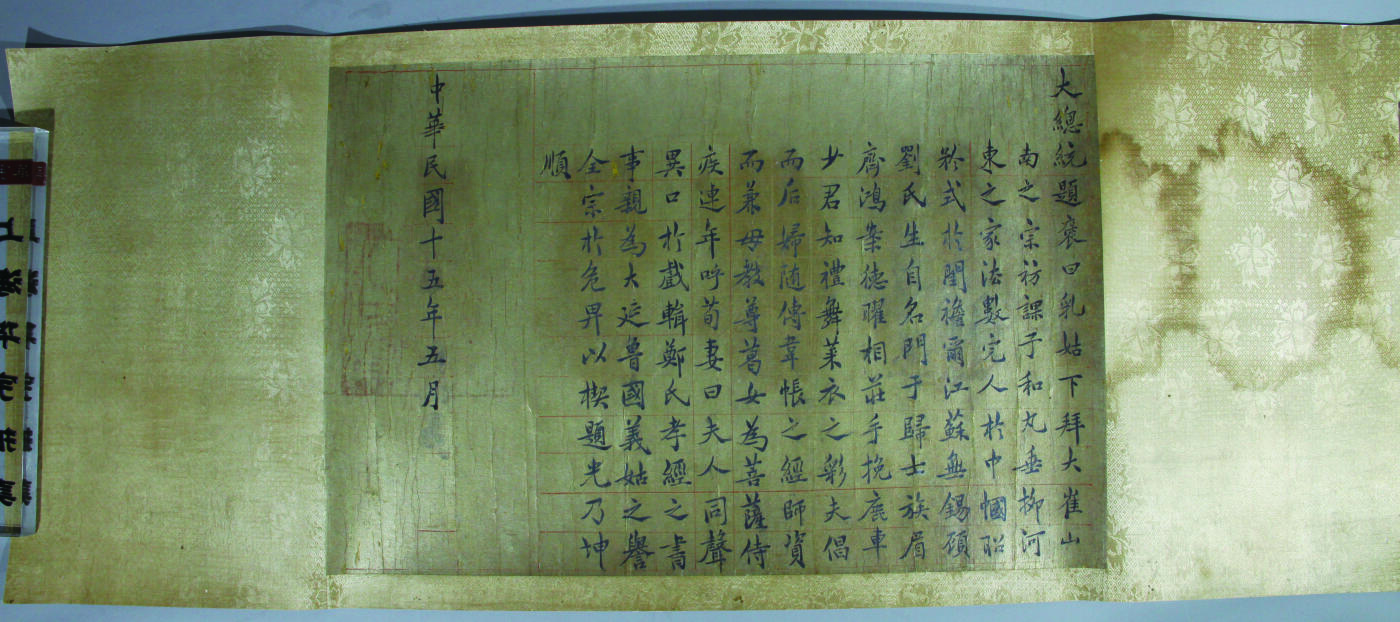 大總統題褒曰乳姑下拜大崔山
南之宗祊課子和丸垂柳河
東之家法數完人於巾幗昭
矜式於閨襜爾江蘇無錫顧
劉氏生自名門于歸士族眉
齊鴻案德曜相莊手挽鹿車
少君知禮舞萊衣之彩夫倡
而后婦随傳韋帳之經師資
而兼母教尊葛女為菩薩侍
疾連年呼荀妻曰夫人同聲
異口於戲輯鄭氏孝經之書
事親為大延魯國義姑之譽
全宗於危畀以楔題光乃坤
順
中華民國十五年五月